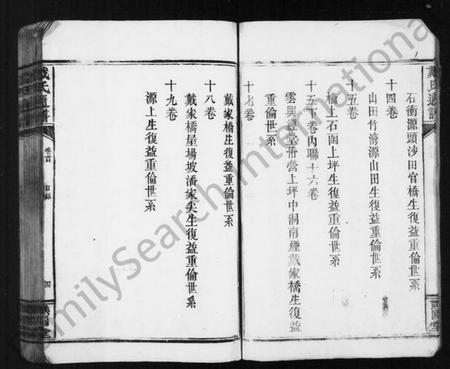 戴氏通譜
石衝源頭沙田官橋生復益重倫世系
十四卷
山田竹灣源山田生復益重倫世系
十五卷
橋上石囱上坪生復益重倫世系
十五下卷內聯十六卷
雲興經堂冊營上坪中洞南煙戴家橋生復益
重倫世系
十七卷
戴家橋生復益重倫世系
十八卷
戴家橋屋場坡潘家尖生復益重倫世系
十九卷
源上生復益重倫世系
戴氏通譜
卷首
目錄
四
FamilySearch International